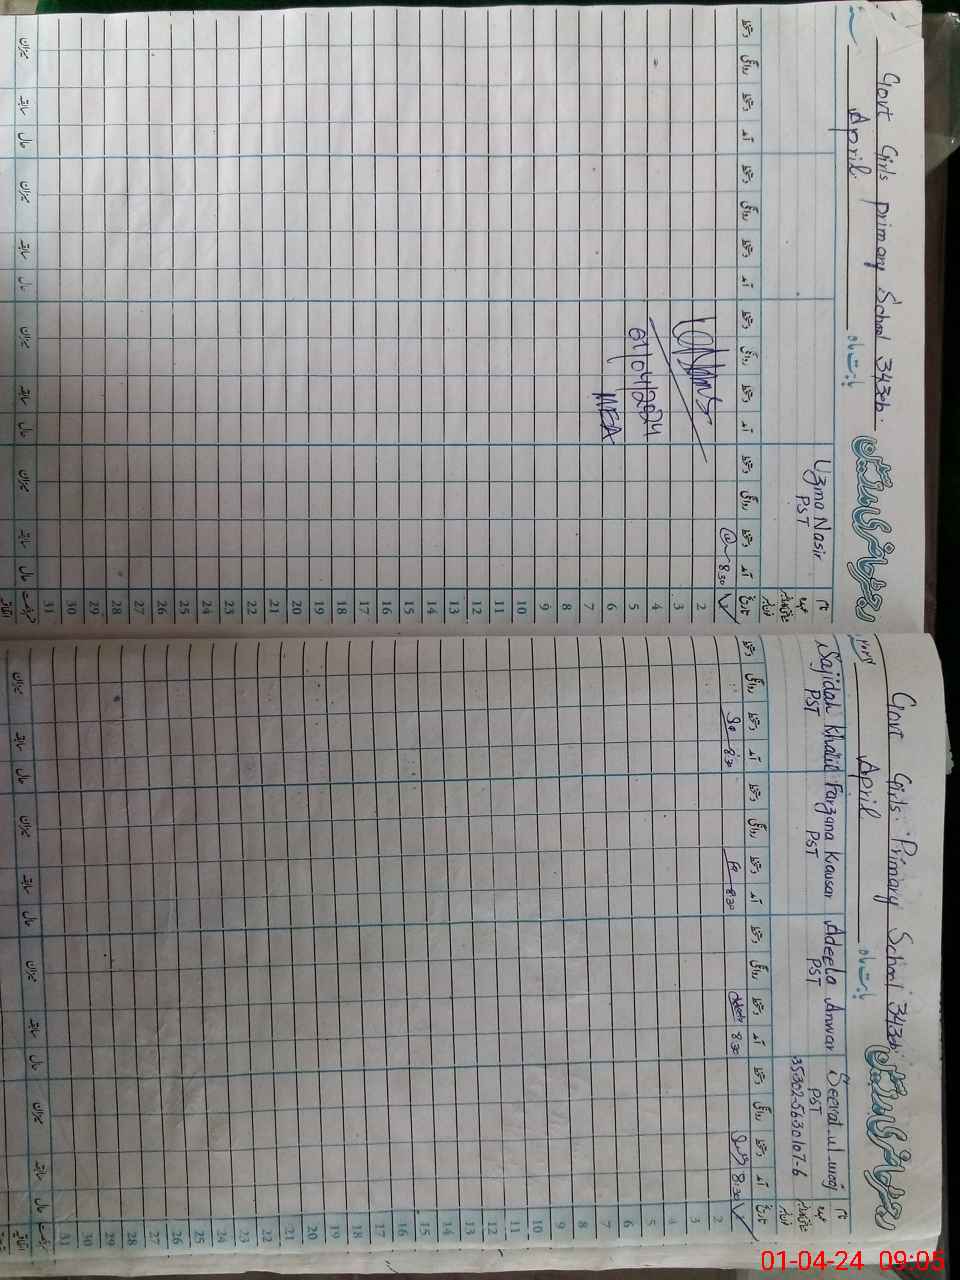 Govt Girls primary School 343eb.
April
بابت ماہ
رجسٹر حاضری مدرسین
Uzma Nasir
PST
نام
عہدہ
تاریخ
آمد
دستخط
روانگی
دستخط
8:30
01/04/2024
MEA
2
3
4
5
6
7
8
9
10
11
12
13
14
15
16
17
18
19
20
21
22
23
24
25
26
27
28
29
30
31
حال
سابقہ
میزان
Govt Girls Primary School 343eb.
April
بابت ماہ
رجسٹر حاضری مدرسین
Sajidah Khalil Farzana Kausar Adeela Anwar Seerat ul
PST PST PST PST
35302-5630107-6
نام
عہدہ
تاریخ
آمد
دستخط
روانگی
دستخط
8:30 8:30 8:30 8:30
2
3
4
5
6
7
8
9
10
11
12
13
14
15
16
17
18
19
20
21
22
23
24
25
26
27
28
29
30
31
حال
سابقہ
میزان
01-04-24 09:05